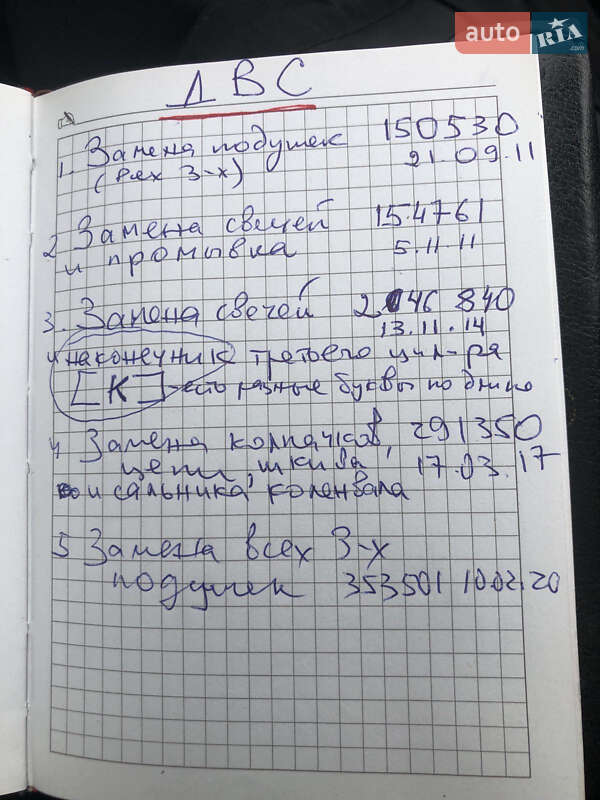 auto RIA .com
ДВС
1. Замена подушек 150530
(всех 3-х) 21.09.11
2 Замена свечей 154761
и промывка 5.11.11
3. Замена свечей 246 840
13.11.14
и наконечник третьего цил-ра
[К] - есть разные буквы по длине
4 Замена колпачков, 291350
цепи, шкива 17.03.17
и сальника коленвала
5 Замена всех 3-х
подушек 353501 10.02.20